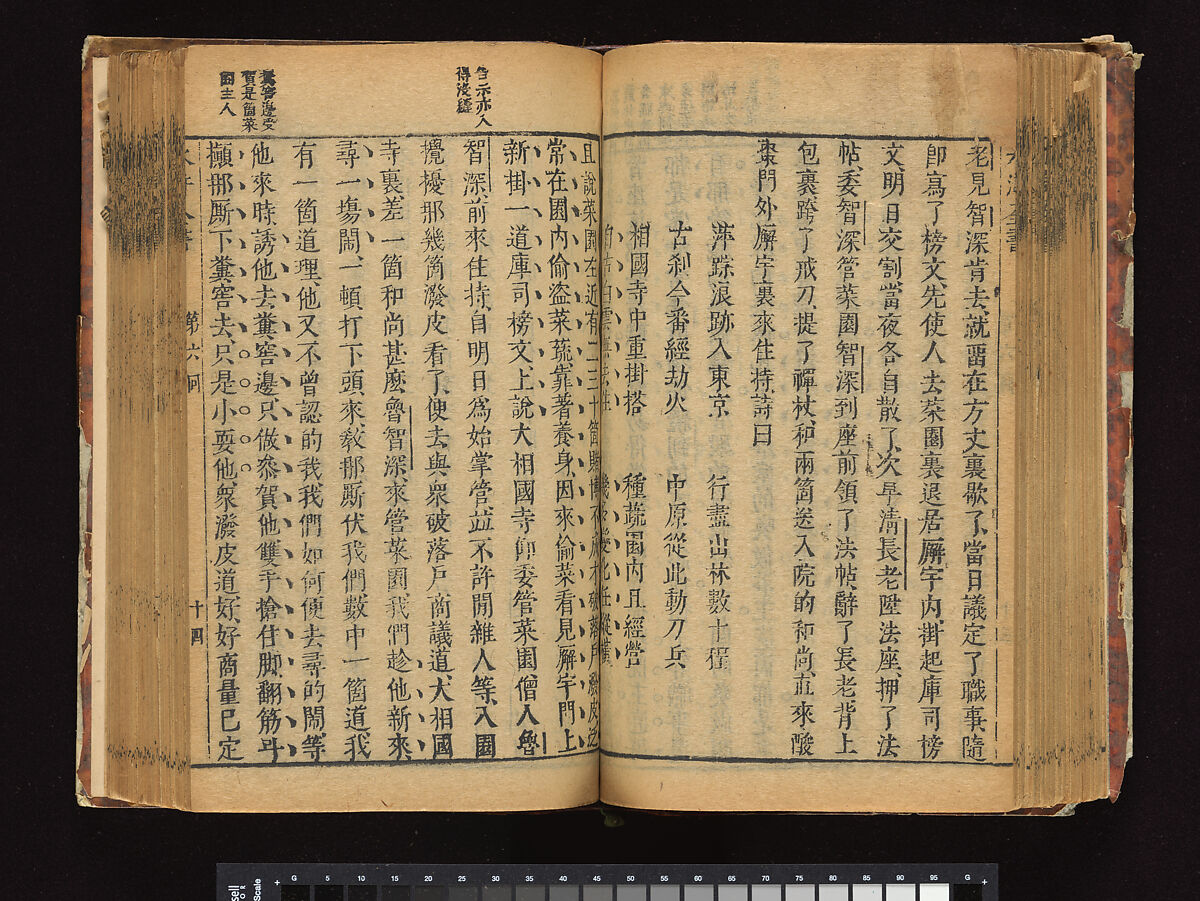 老見智深肯去就畱在方丈裏歇了當日議定了職事隨
卽寫了榜文先使人去菜園裏退居廨宇內掛起庫司榜
文明日交割當夜各自散了次早清長老陞法座押了法
帖委智深管菜園智深到座前領了法帖辭了長老背上
包裹跨了戒刀提了禪杖和兩箇送入院的和尚直來酸
棗門外廨宇裏來住持詩曰
萍踪浪跡入東京 行盡山林數十程
古刹今番經劫火 中原從此動刀兵
相國寺中重掛搭 種蔬園內且經營
自古白雲無去住 幾多變化任縱橫
且說菜園左近有二三十箇賭博不成才破落戶潑皮泛
常在園內偷盗菜蔬靠著養身因來偷菜看見廨宇門上
新掛一道庫司榜文上說大相國寺仰委管菜園僧人魯
智深前來住持自明日爲始掌管並不許閒雜人等入園
攪擾那幾箇潑皮看了便去與衆破落戶商議道大相國
寺裏差一箇和尚甚麼魯智深來管菜園我們趁他新來
尋一塲鬧一頓打下頭來教那厮伏我們數中一箇道我
有一箇道理他又不曾認的我我們如何便去尋的鬧等
他來時誘他去糞窖邊只做叅賀他雙手搶住脚翻筋斗
攧那厮下糞窖去只是小耍他衆潑皮道好好商量已定
告示亦入
得淺縫
糞窖邊受
賀是箇菜
園主人
第六回
十四